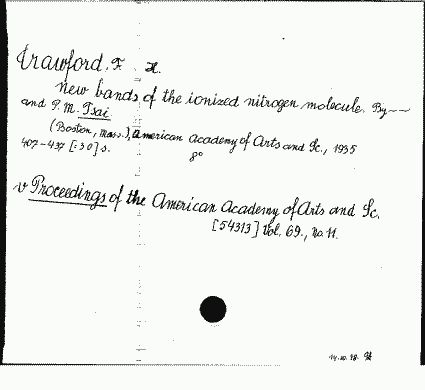 Crawford, F. H.
New bands of the ionized nitrogen molecule. By —
and P. M. Tsai
(Boston, Mass.), American Academy of Arts and Sc., 1935
407-437 [:30] s. 8°
v Proceedings of the American Academy of Arts and Sc.
[54313] Vol. 69., No. 11.